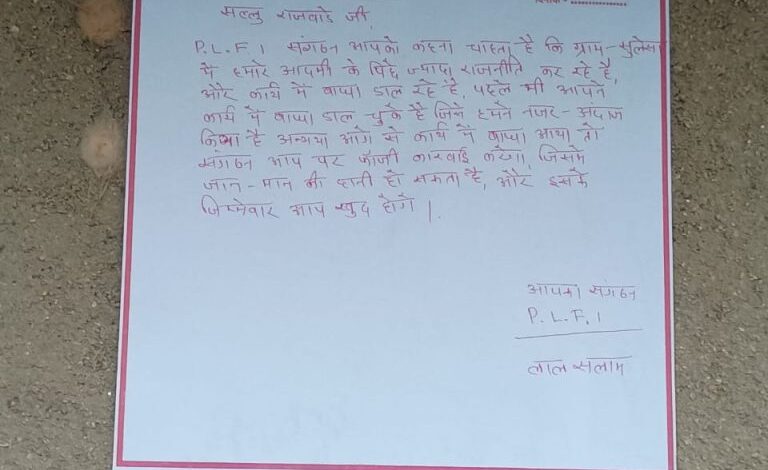 मल्लु राजवाडे जी,
P.L.F.I संगठन आपको कहना चाहता है कि ग्राम-सुलेसा
में हमारे आदमी के पिछे ज्यादा राजनीति कर रहे है,
और कार्य में बाधा डाल रहे है, पहले भी आपने
कार्य में बाधा डाल चुके है जिसे हमने नजर-अंदाज
किया है अन्यथा आगे से कार्य में बाधा आया तो
संगठन आप पर फौजी कारवाई करेगा, जिसमे
जान-मान की हानी हो सकता है, और इसके
जिम्मेवार आप खुद होंगे।
आपका संगठन
P.L.F.I
लाल सलाम